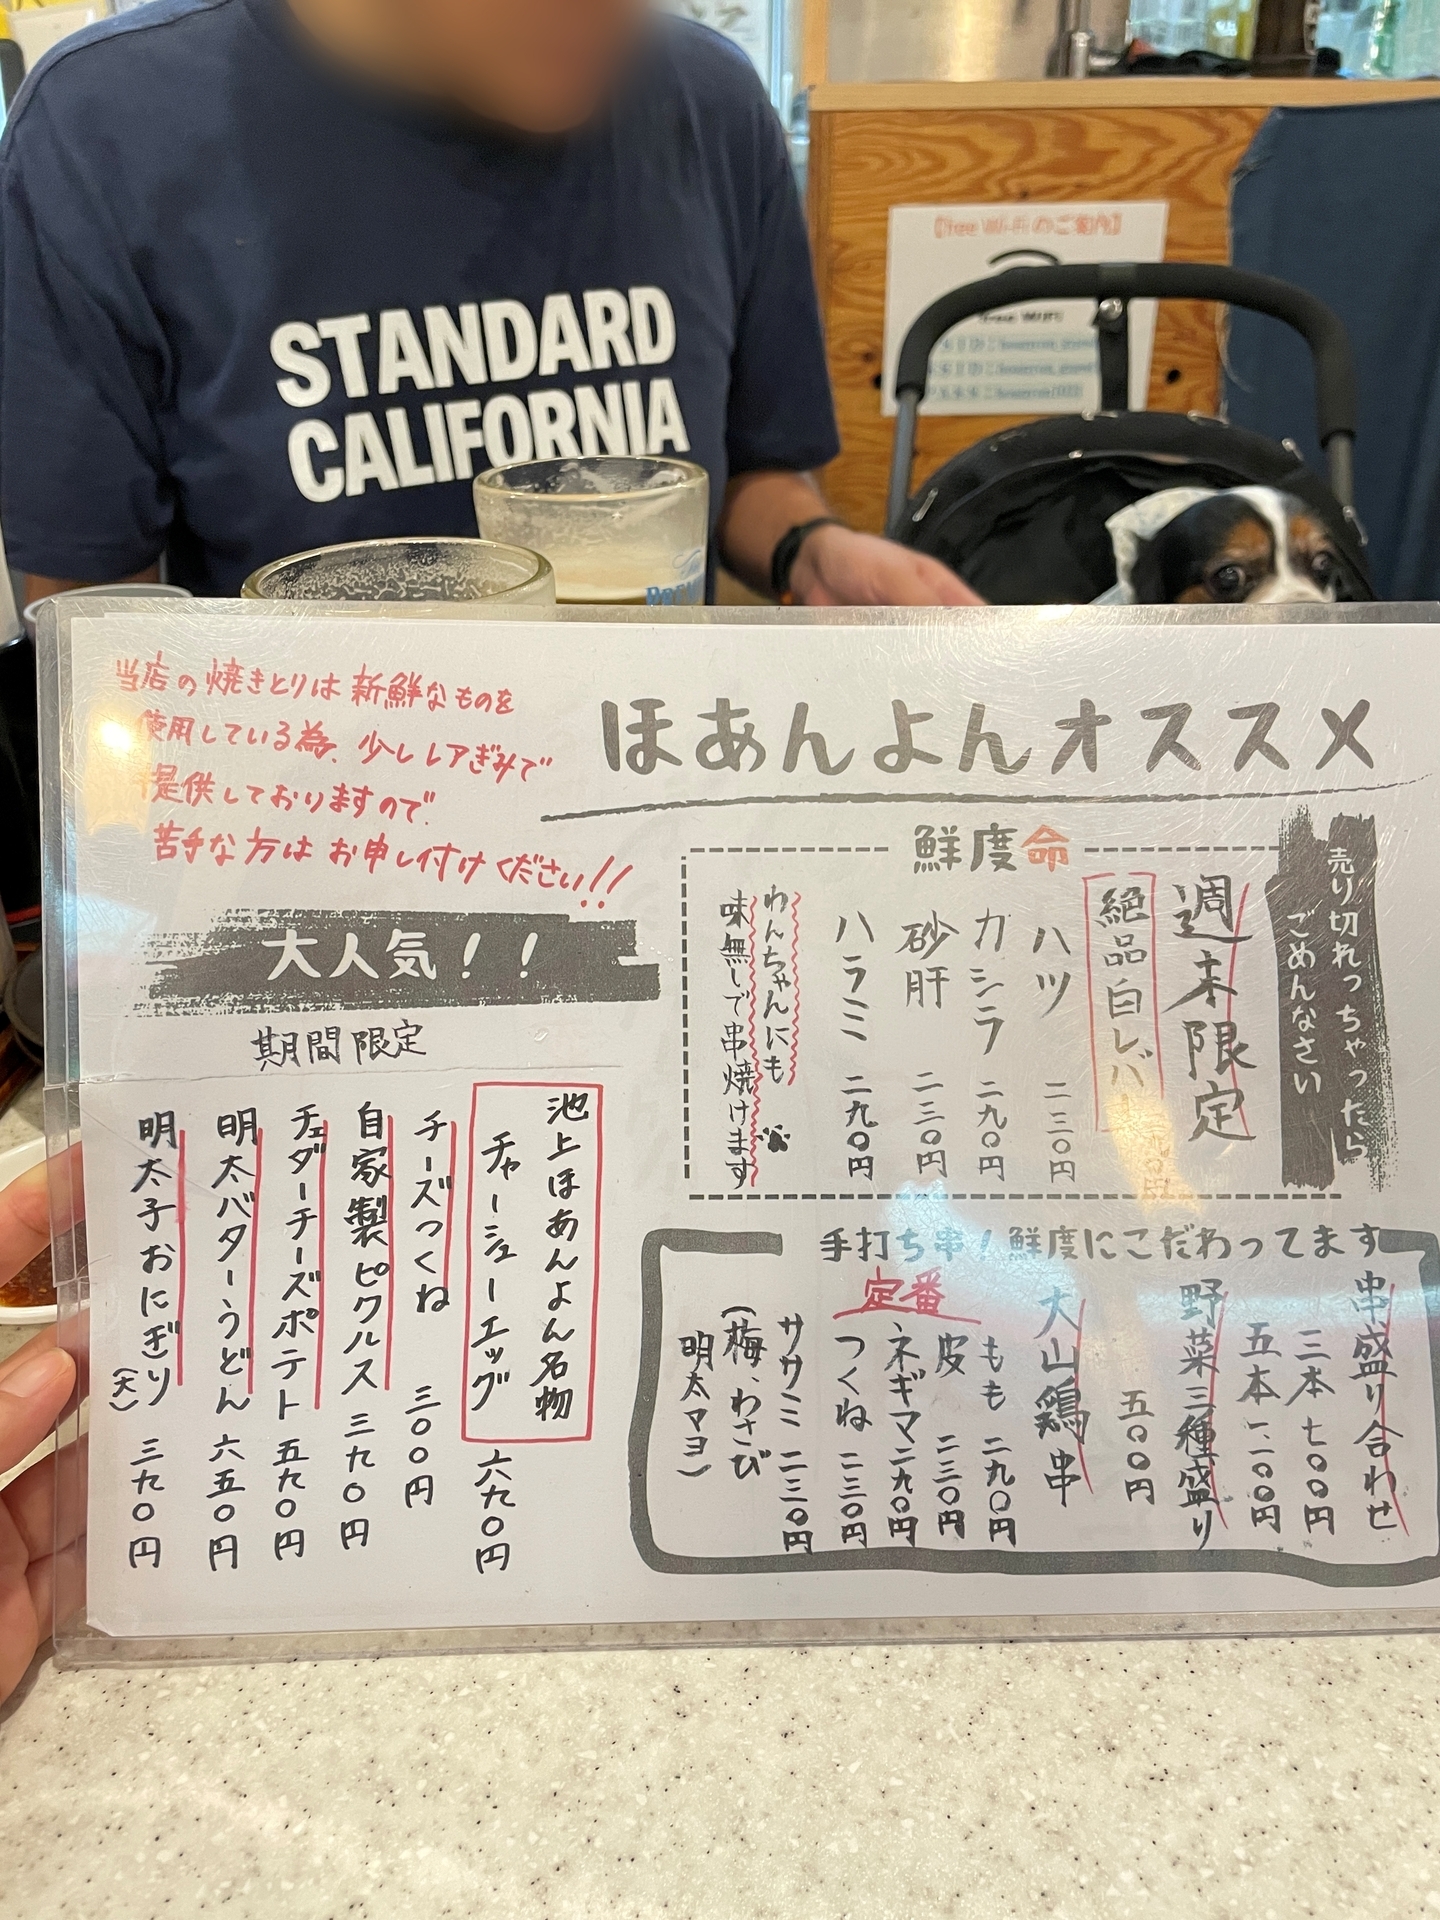 STANDARD
CALIFORNIA
【free Wi-Fiのご案内】
free WiFi
当店の焼きとりは新鮮なものを
使用している為、少しレアぎみで
提供しておりますので、
苦手な方はお申し付けください!!
ほあんよんオススメ
売り切れっちゃったら
ごめんなさい
鮮度命
週末限定
絶品白レバー
ハツ 二三〇円
カシラ 二九〇円
砂肝 二三〇円
ハラミ 二九〇円
わんちゃんにも
味無しで串焼けます
大人気！！
期間限定
池上ほあんよん名物
チャーシューエッグ 六九〇円
チーズつくね 三〇〇円
自家製ピクルス 三九〇円
チェダーチーズポテト 五九〇円
明太バターうどん 六五〇円
明太子おにぎり(大) 三九〇円
手打ち串！鮮度にこだわってます
串盛り合わせ
三本 七〇〇円
五本 一、一〇〇円
野菜三種盛り
五〇〇円
大山鶏串
定番
もも 二九〇円
皮 二三〇円
ネギマ 二九〇円
つくね 二三〇円
ササミ 二三〇円
(梅、わさび
明太マヨ)